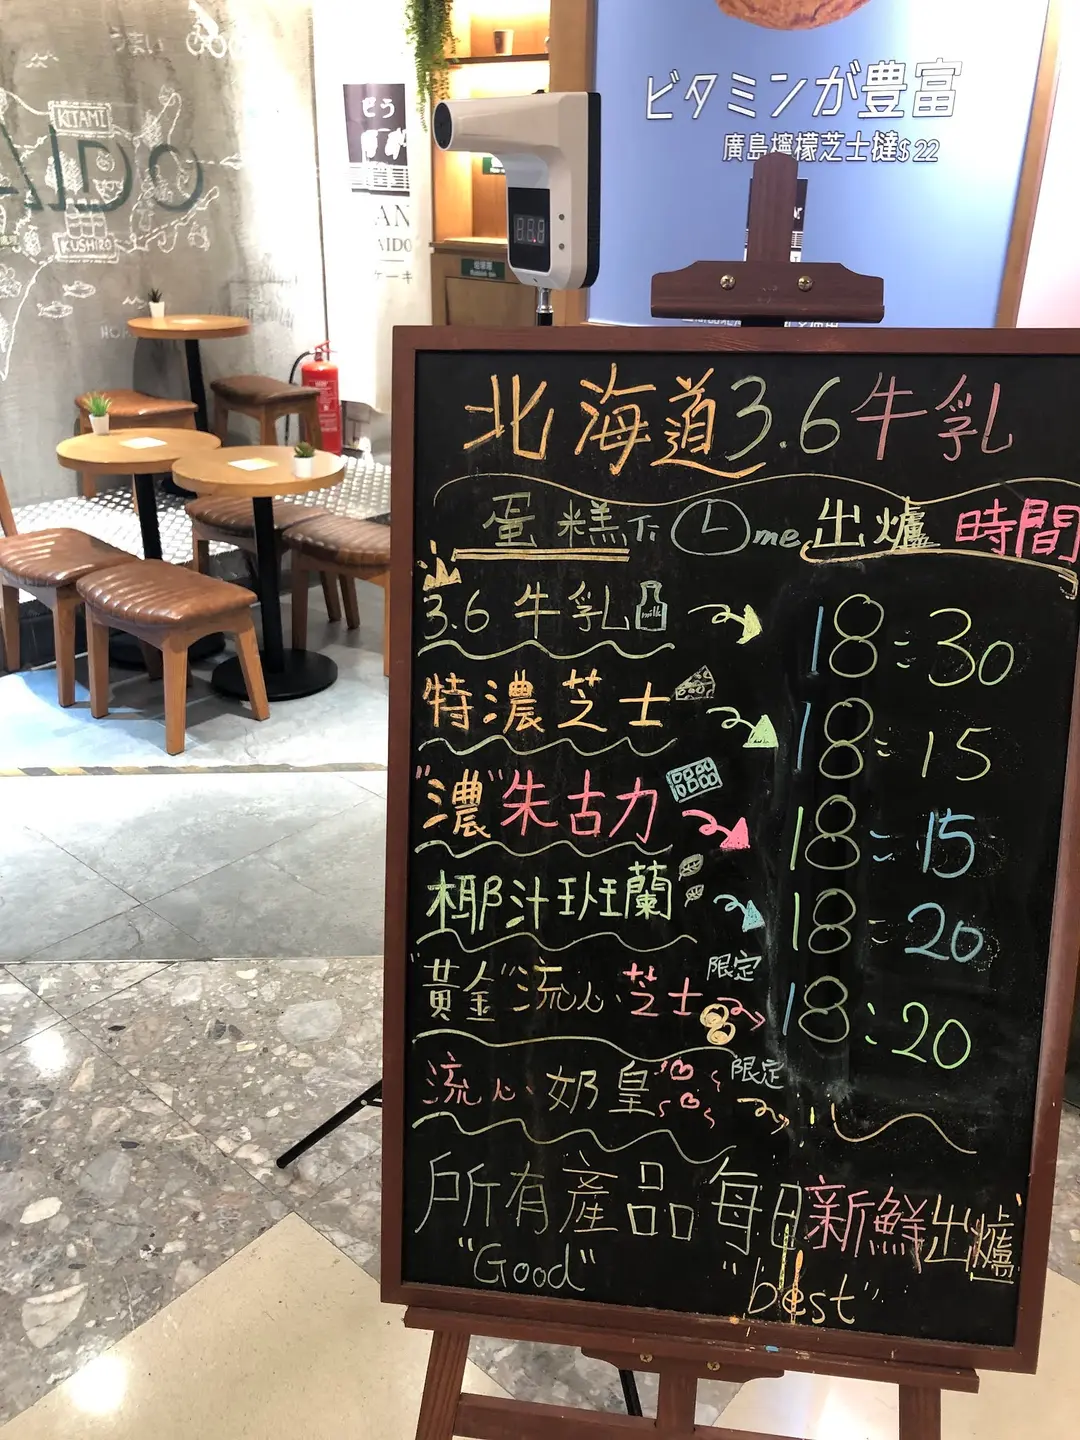 うまい
KITAMI
AIDO
KUSHIRO
どう
AN
AIDO
ケーキ
ビタミンが豊富
廣島檸檬芝士撻$22
垃圾箱
Rubbish bin
北海道3.6牛乳
蛋糕 Time 出爐時間
3.6牛乳 milk 18:30
特濃芝士 18:15
"濃"朱古力 18:15
椰汁班蘭 18:20
"黃金"流心芝士 限定 18:20
流心奶皇 限定
所有產品每日新鮮出爐
"Good" "best"